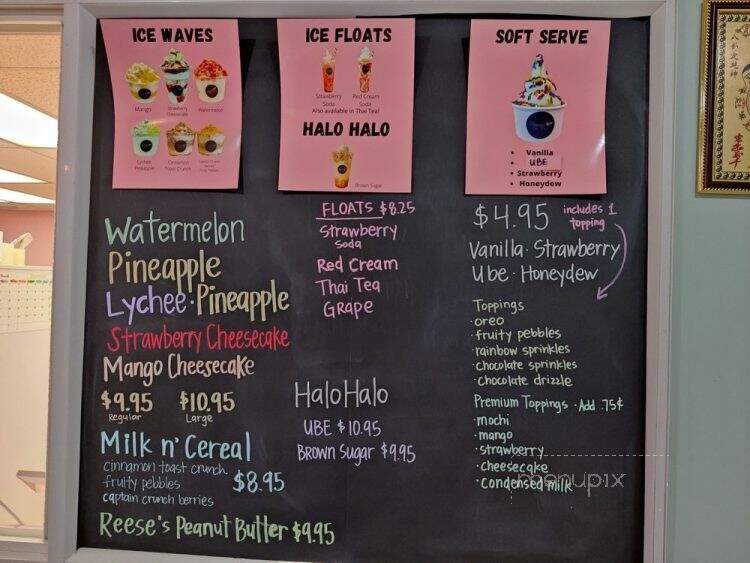 ICE WAVES
Mango
Strawberry Cheesecake
Watermelon
Lychee Pineapple
Cinnamon Toast Crunch
ICE FLOATS
Strawberry Soda
Red Cream Soda
Also available in Thai Tea!
HALO HALO
Brown Sugar
SOFT SERVE
• Vanilla
• UBE
• Strawberry
• Honeydew
Watermelon
Pineapple
Lychee·Pineapple
Strawberry Cheesecake
Mango Cheesecake
$9.95 $10.95
Regular Large
Milk n' Cereal
cinnamon toast crunch
fruity pebbles $8.95
captain crunch berries
Reese's Peanut Butter $9.95
FLOATS $8.25
Strawberry
Soda
Red Cream
Thai Tea
Grape
HaloHalo
UBE $10.95
Brown Sugar $9.95
$4.95 includes 1
topping
Vanilla · Strawberry
Ube · Honeydew
Toppings
·oreo
·fruity pebbles
·rainbow sprinkles
·chocolate sprinkles
·chocolate drizzle
Premium Toppings · Add .75¢
·mochi
·mango
·strawberry
·cheesecake
·condensed milk
menupix